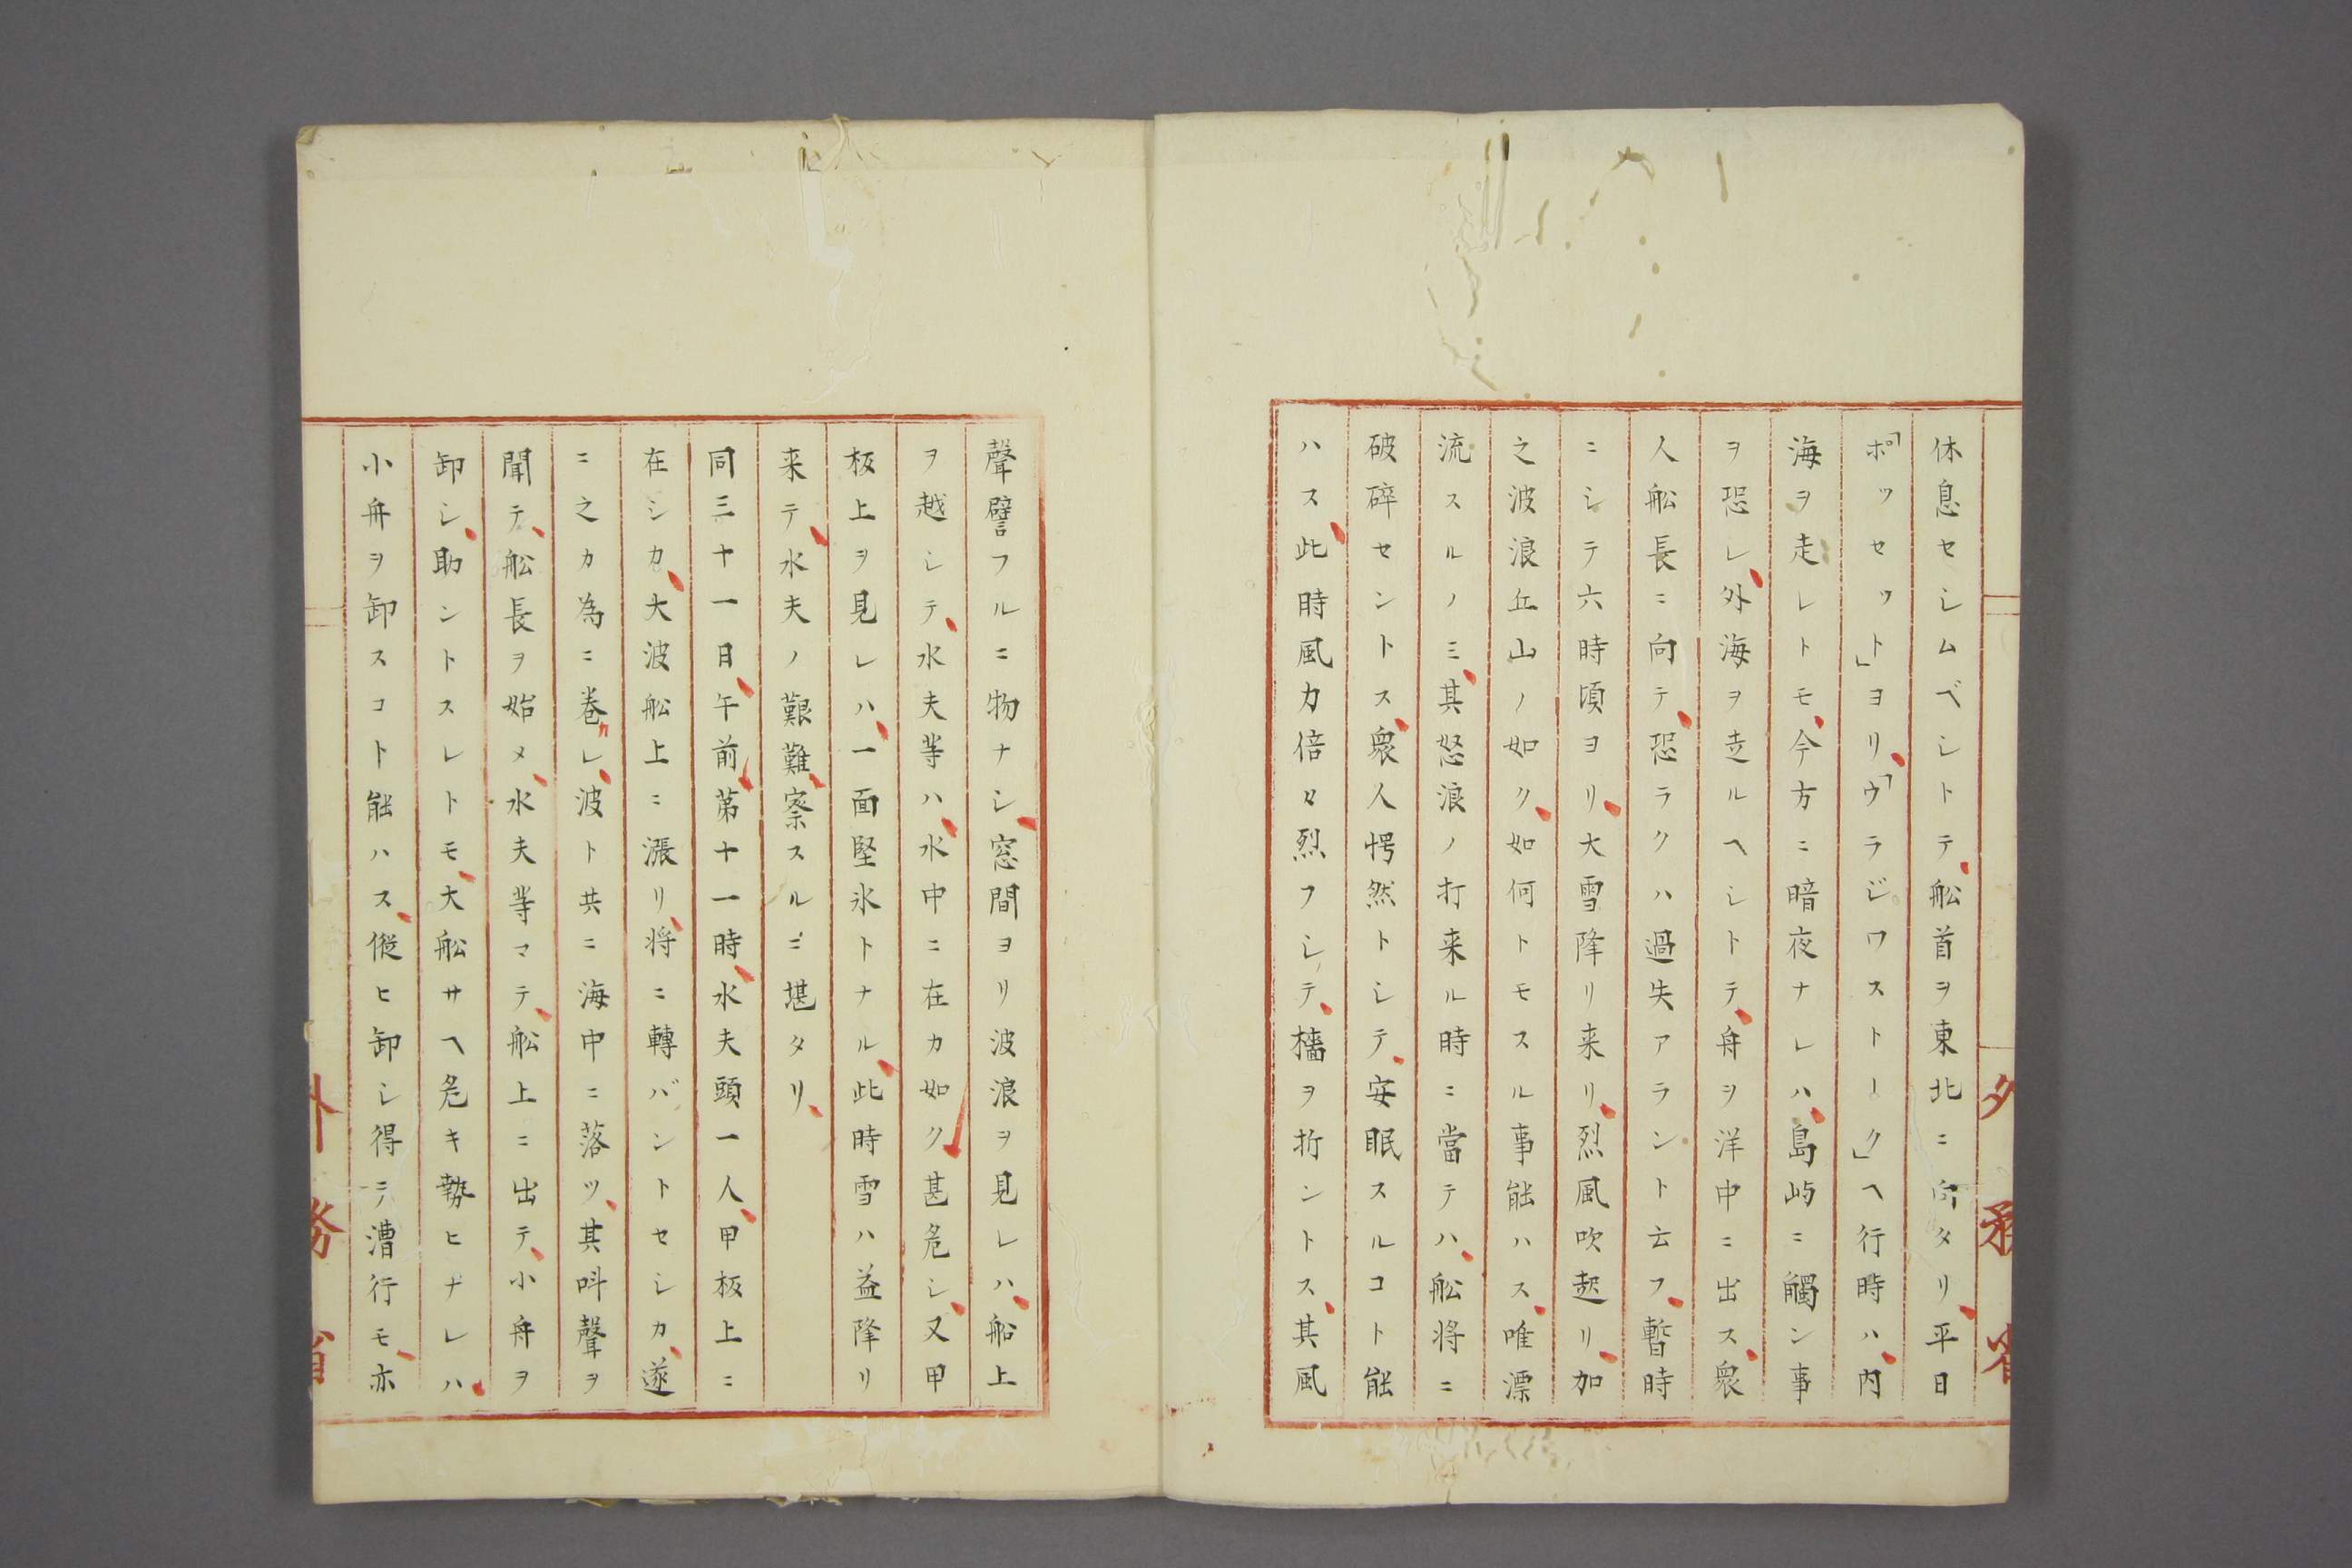 休息セシムベシトテ、舩首ヲ東北ニ向タリ、平日
「ポツセツト」ヨリ、「ウラジワストーク」ヘ行時ハ、内
海ヲ走レトモ、今方ニ暗夜ナレハ、島嶼ニ觸ン事
ヲ恐レ、外海ヲ走ルヘシトテ、舟ヲ洋中ニ出ス、衆
人舩長ニ向テ、恐ラクハ過失アラント云フ、暫時
ニシテ六時頃ヨリ、大雪降リ来リ、烈風吹起リ、加
之波浪丘山ノ如ク、如何トモスル事能ハス、唯漂
流スルノミ、其怒浪ノ打来ル時ニ當テハ、舩将ニ
破碎セントス、衆人愕然トシテ、安眠スルコト能
ハス、此時風力倍々烈フシテ、檣ヲ折ントス、其風
聲譬フルニ物ナシ、窓間ヨリ波浪ヲ見レハ、船上
ヲ越シテ、水夫等ハ、水中ニ在カ如ク甚危シ、又甲
板上ヲ見レハ、一面堅氷トナル、此時雪ハ益降リ
来テ、水夫ノ艱難、察スルニ堪タリ、
同三十一日、午前、第十一時、水夫頭一人、甲板上ニ
在シカ、大波舩上ニ漲リ、将ニ轉バントセシカ、遂
ニ之カ為ニ巻レ、波ト共ニ海中ニ落ツ、其呌聲ヲ
聞テ、舩長ヲ始メ、水夫等マテ、舩上ニ出テ、小舟ヲ
卸シ、助ントスレトモ、大舩サヘ危キ勢ヒナレハ、
小舟ヲ卸スコト能ハス、縦ヒ卸シ得テ漕行モ、亦
外務省
外務省